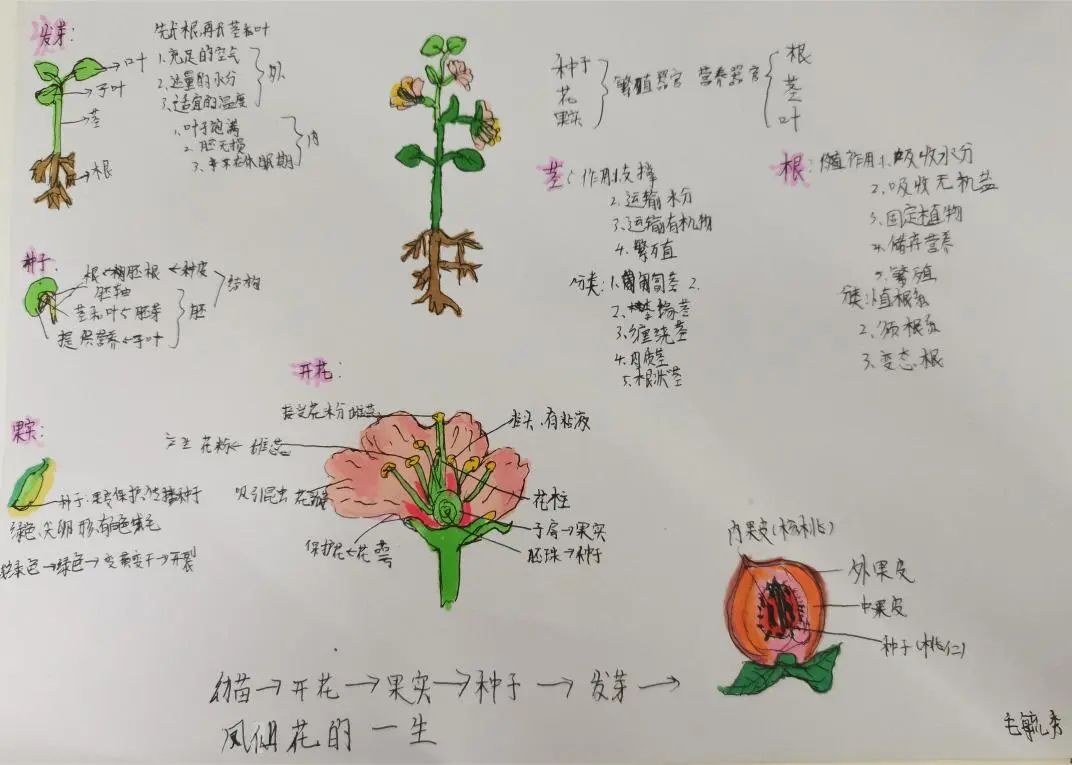 发芽:
先长根,再长茎和叶
1.充足的空气
2.适量的水分
3.适宜的温度
外
1.叶子饱满
2.胚无损
3.不在休眠期
内
叶
子叶
茎
根
种子
花
果实
繁殖器官 营养器官
根
茎
叶
茎:作用:支撑
2.运输水分
3.运输有机物
4.繁殖
分类:1.
2.
3.缠绕茎
4.肉质茎
5.根状茎
根:作用 1.吸收水分
2.吸收无机盐
3.固定植物
4.储存营养
5.繁殖
分类:直根系
2.须根系
3.变态根
种子:
根←胚根←种皮
胚轴
茎和叶←胚芽
提供营养←子叶
胚
结构
果实:
种子:果实保护,传播种子
绿色,尖卵形,有白色绒毛
绿色→变黄变干→开裂
开花:
雌蕊
柱头,有粘液
花粉←雄蕊
吸引昆虫 花瓣
花柱
子房→果实
胚珠→种子
保护花←花萼
内果皮(核桃)
外果皮
中果皮
种子(桃仁)
幼苗→开花→果实→种子→发芽→
凤仙花的一生
毛毓秀